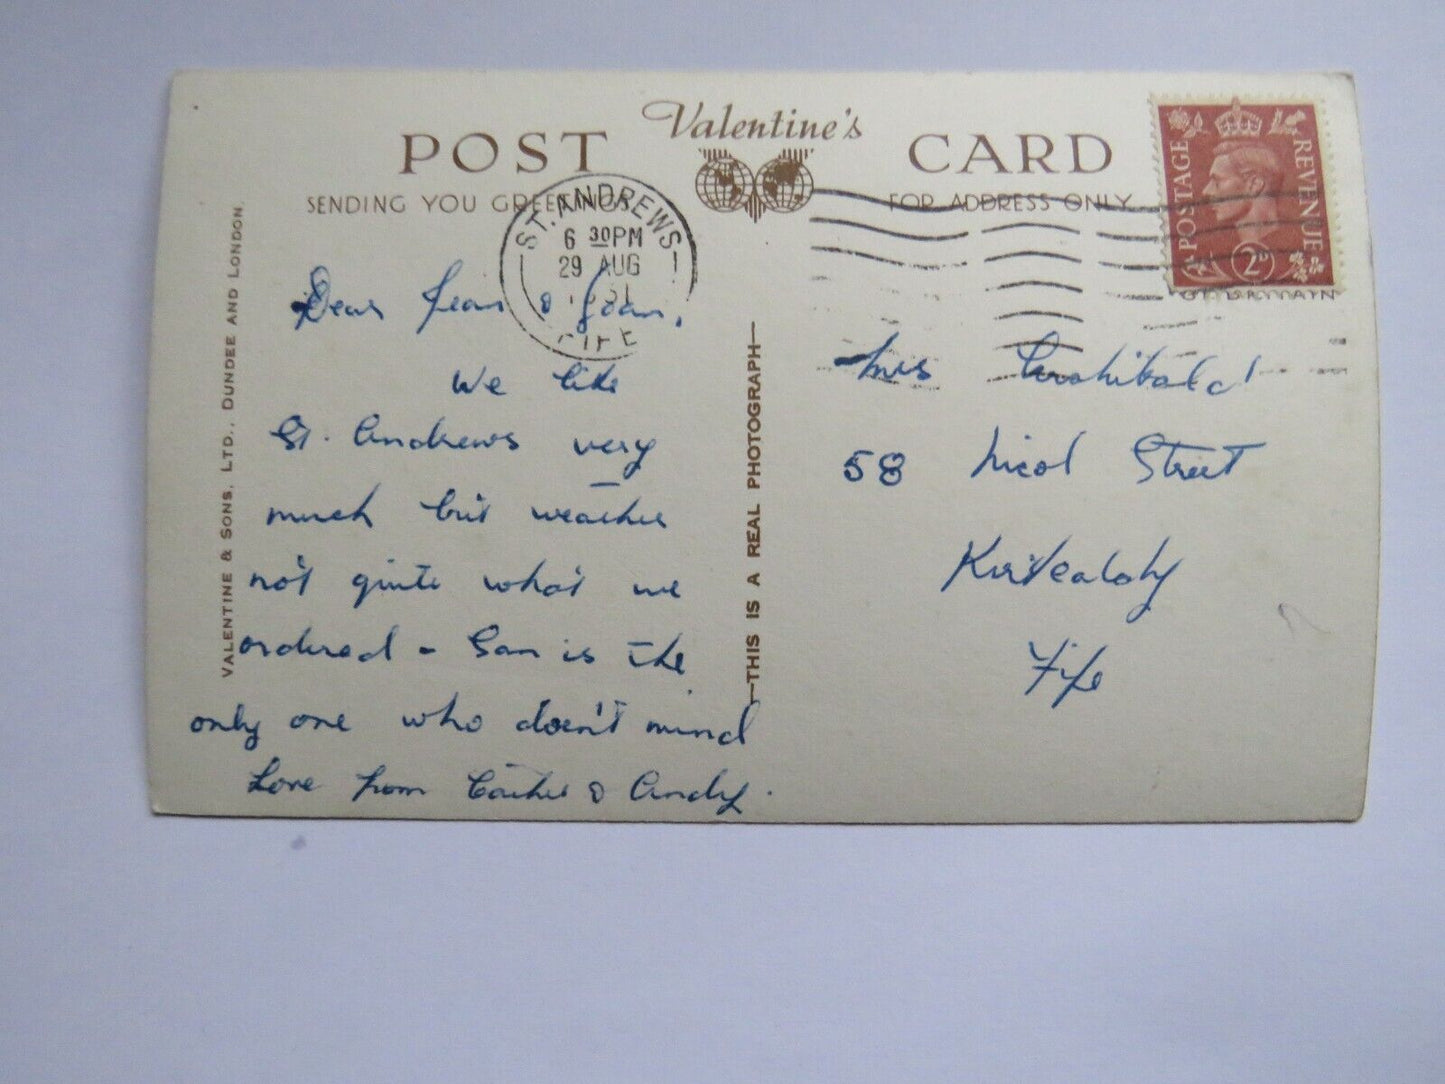 Valentine's
POST CARD
SENDING YOU GREETINGS
FOR ADDRESS ONLY
ST. ANDREWS
6 30PM
29 AUG
1951
FIFE
POSTAGE REVENUE
2D
VALENTINE & SONS, LTD., DUNDEE AND LONDON.
—THIS IS A REAL PHOTOGRAPH—
Dear Jean & Joan,
We like
St. Andrews very
much but weather
not quite what we
ordered - Sam is the
only one who doesn't mind
Love from & Andy.
Mrs Archibald
58 Nicol Street
Kirkcaldy
Fife